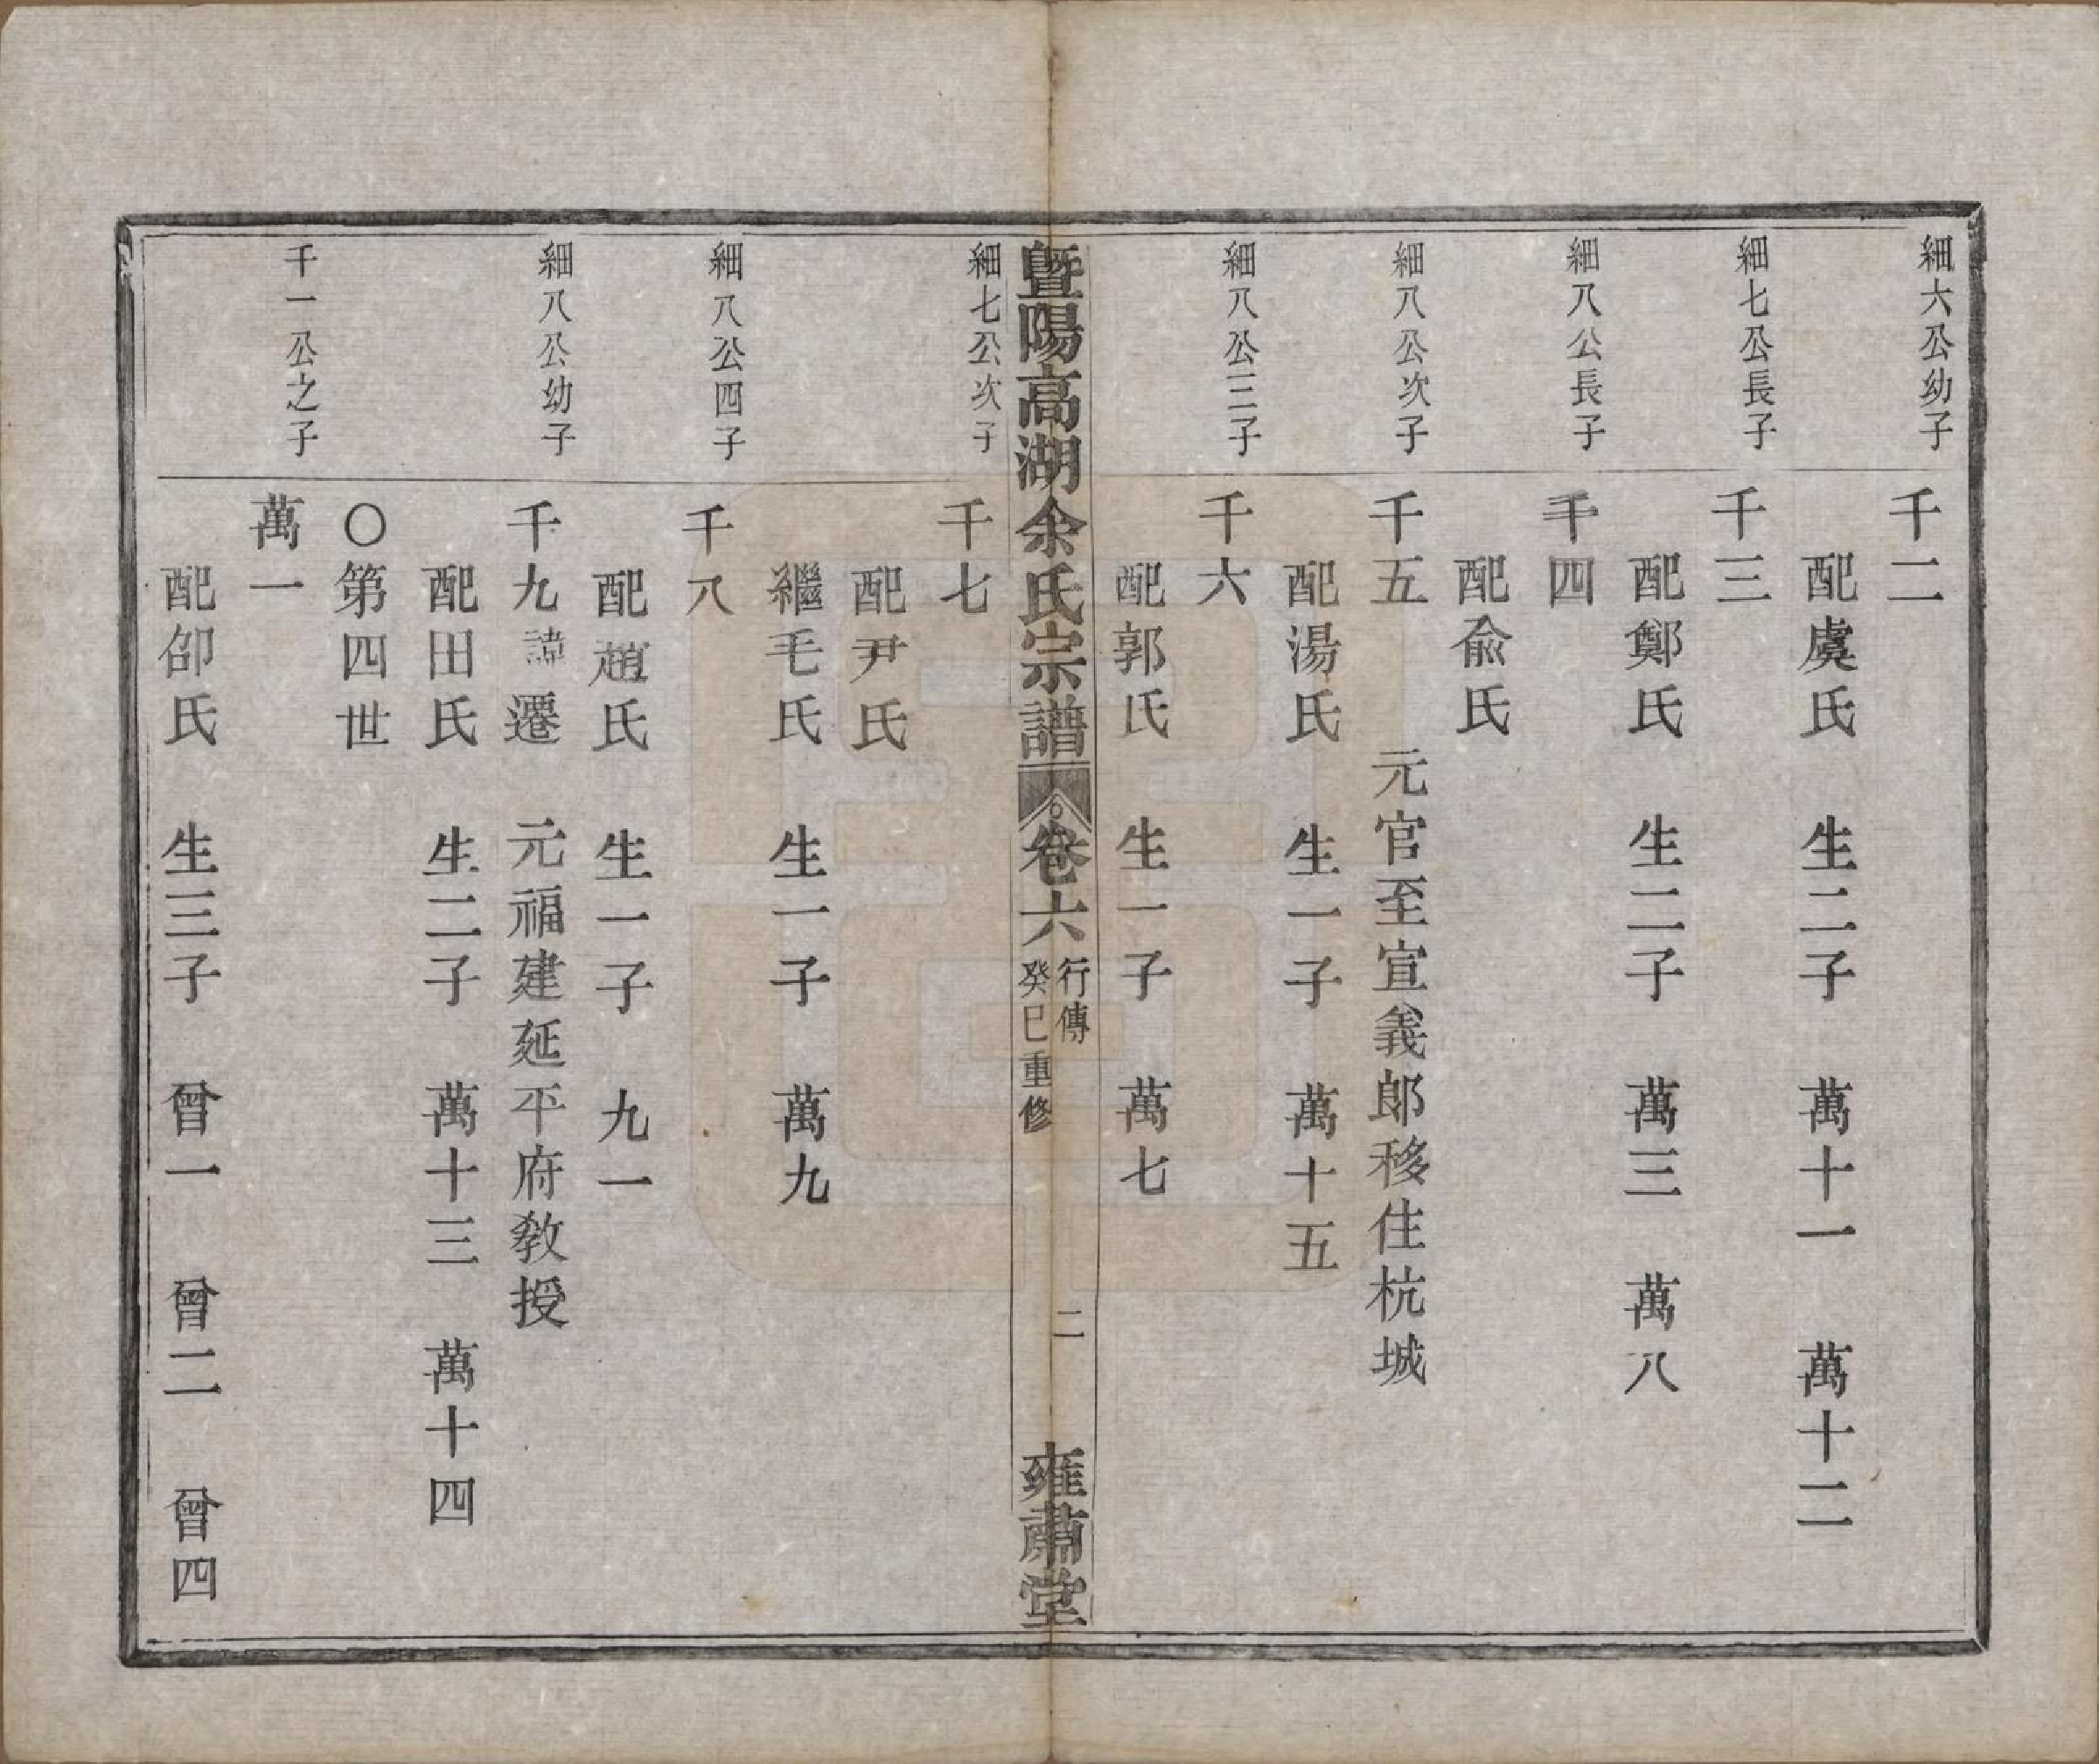 細六公幼子
千二
配虞氏　生二子　萬十一　萬十二
細七公長子
千三
配鄭氏　生二子　萬三　萬八
細八公長子
千四
配俞氏
細八公次子
千五　元官至宣義郎移住杭城
配湯氏　生一子　萬十五
細八公三子
千六
配郭氏　生一子　萬七
暨陽高湖余氏宗譜　卷六　行傳　癸巳重修　二　雍肅堂
細七公次子
千七
配尹氏
繼毛氏　生一子　萬九
細八公四子
千八
配趙氏　生一子　九一
細八公幼子
千九諱遷　元福建延平府教授
配田氏　生二子　萬十三　萬十四
〇第四世
千一公之子
萬一
配邵氏　生三子　曾一　曾二　曾四